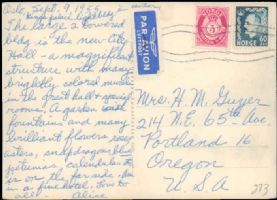 Oslo, Sept. 9, 1956
The large 2 towered
bldg is the new City
Hall - a magnificent
structure with many
brightly colored murals
in the great hall & various
rooms, a garden and
fountains and many
brilliant flowers, roses,
asters, snapdragons,
petunias, calendulas, etc.
is on the far side. Am
in a fine hotel. Love to
all. Alice
PAR AVION
LUFTPOST
NORGE
5
NORGE
60
Mrs. H. M. Guyer
214 N.E. 65th Ave
Portland 16
Oregon
U.S.A
273